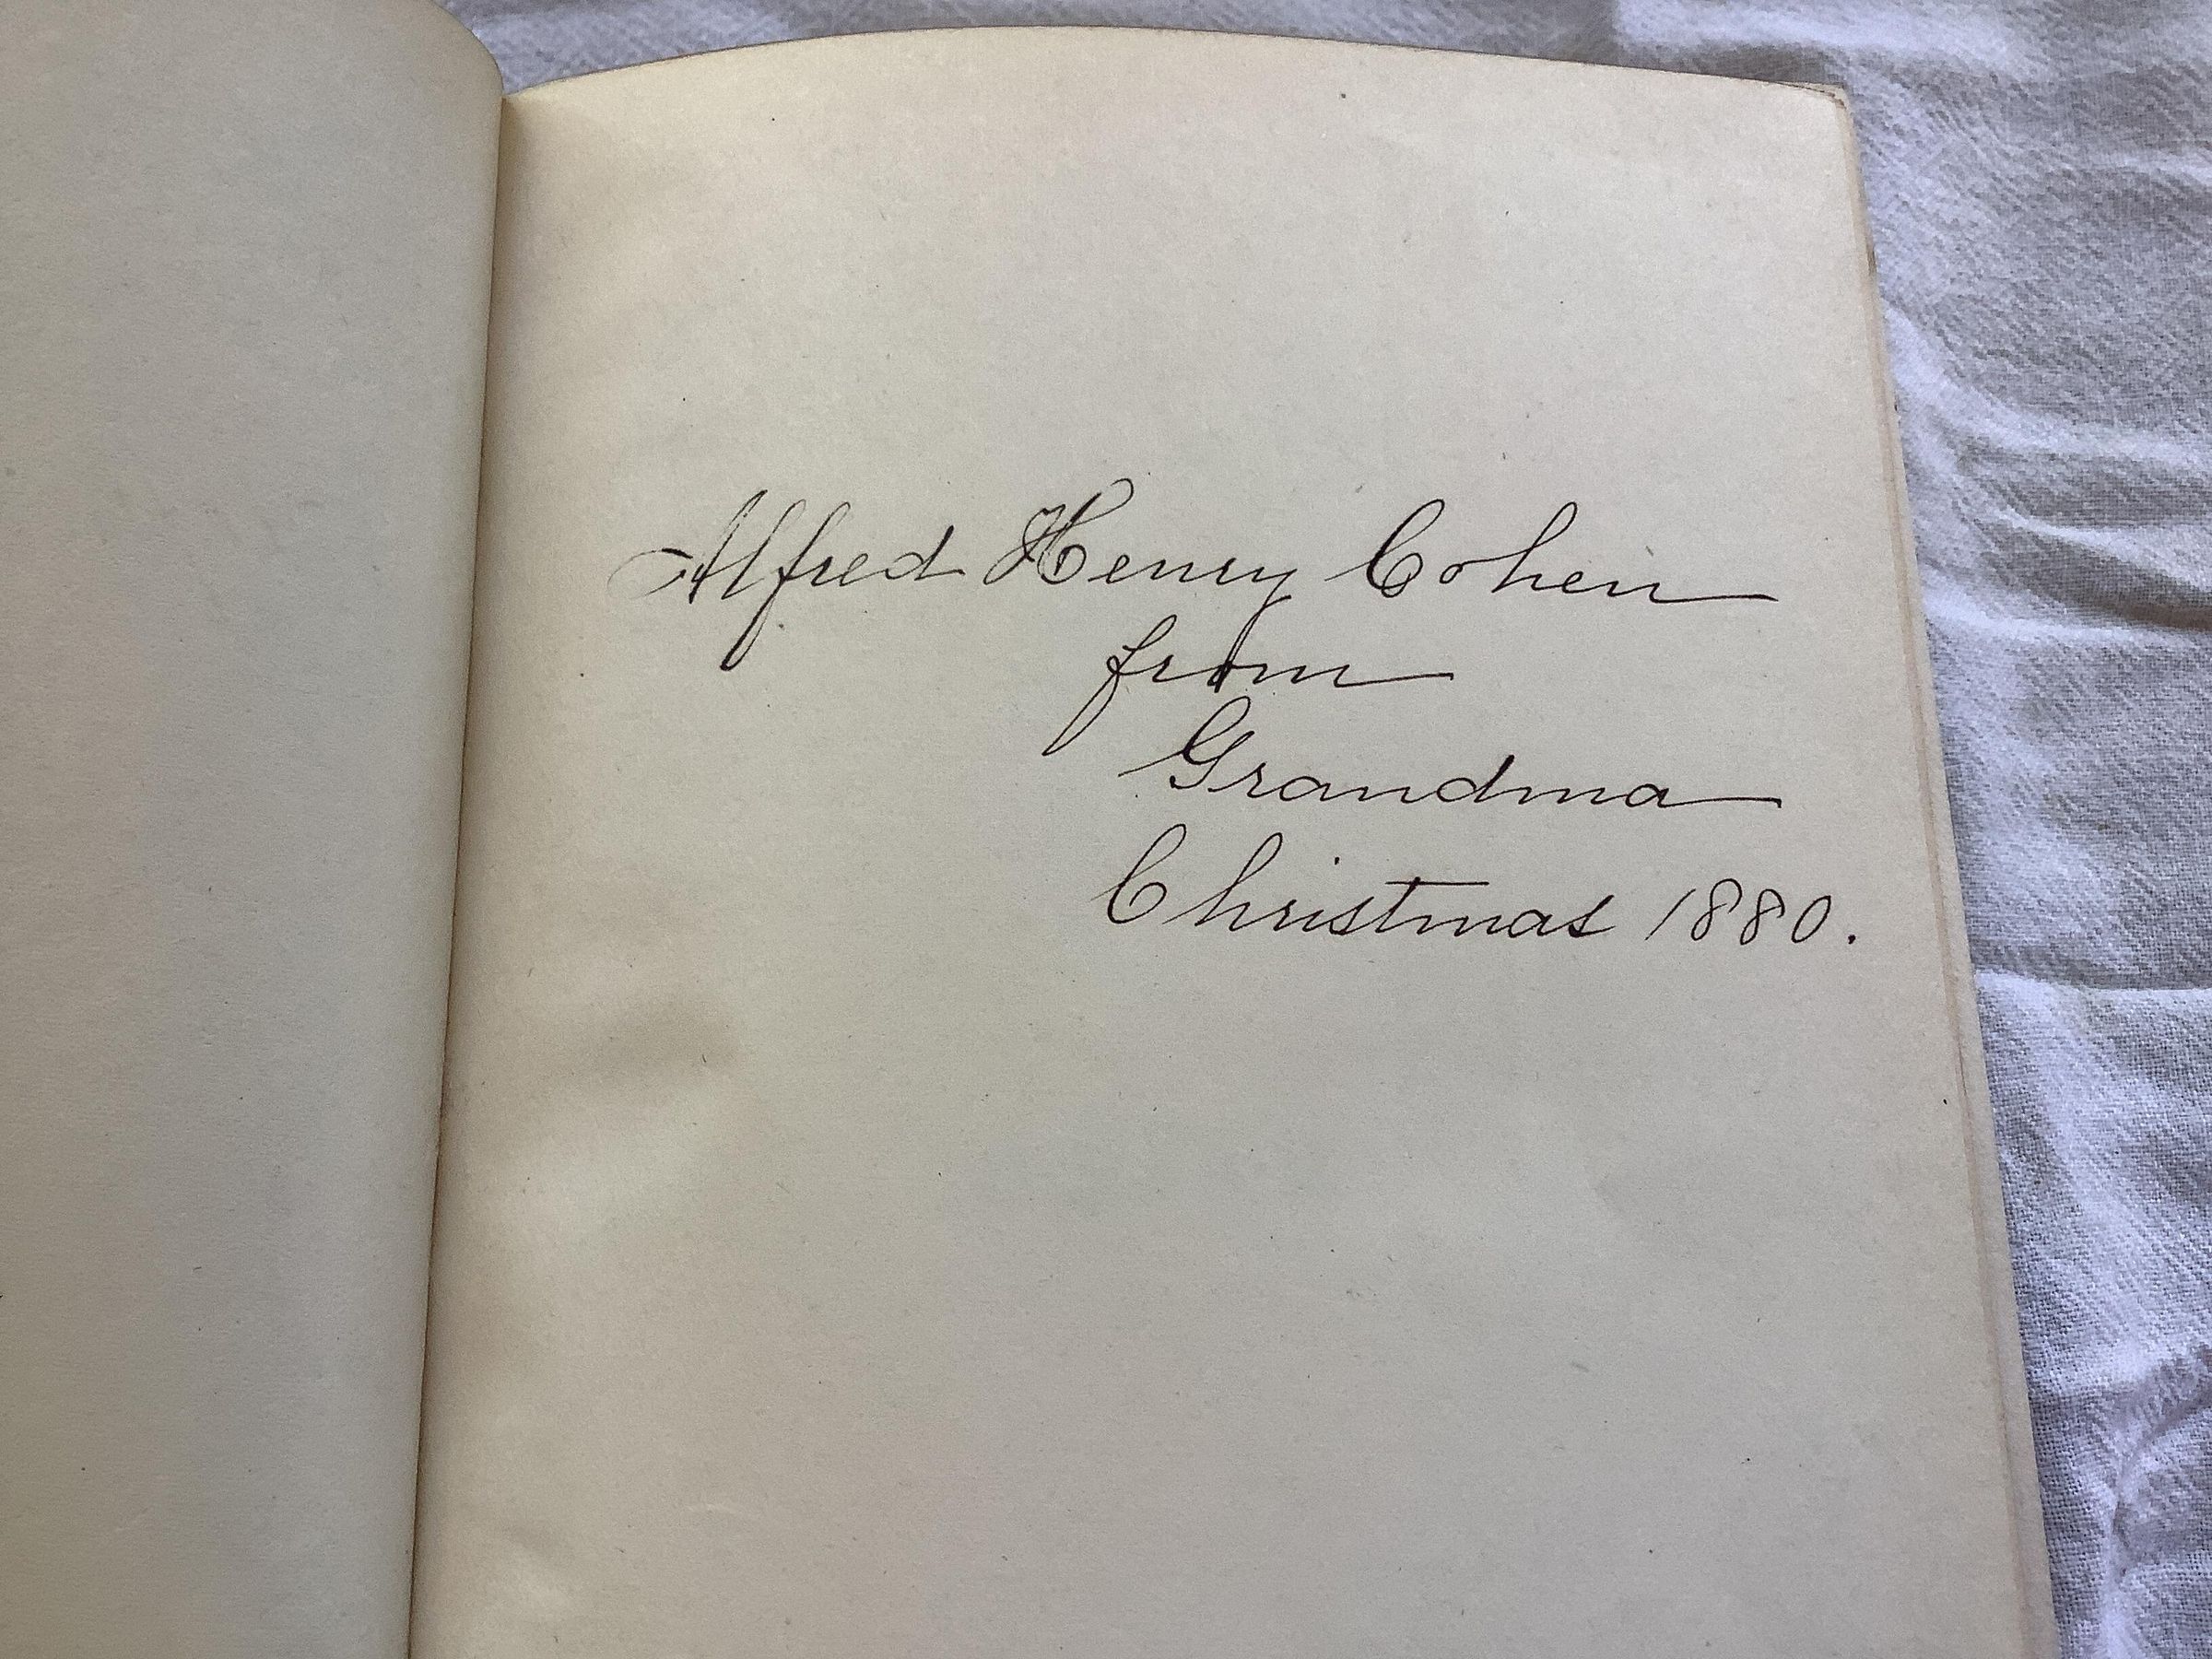 Alfred Henry Cohen
from
Grandma
Christmas 1880.